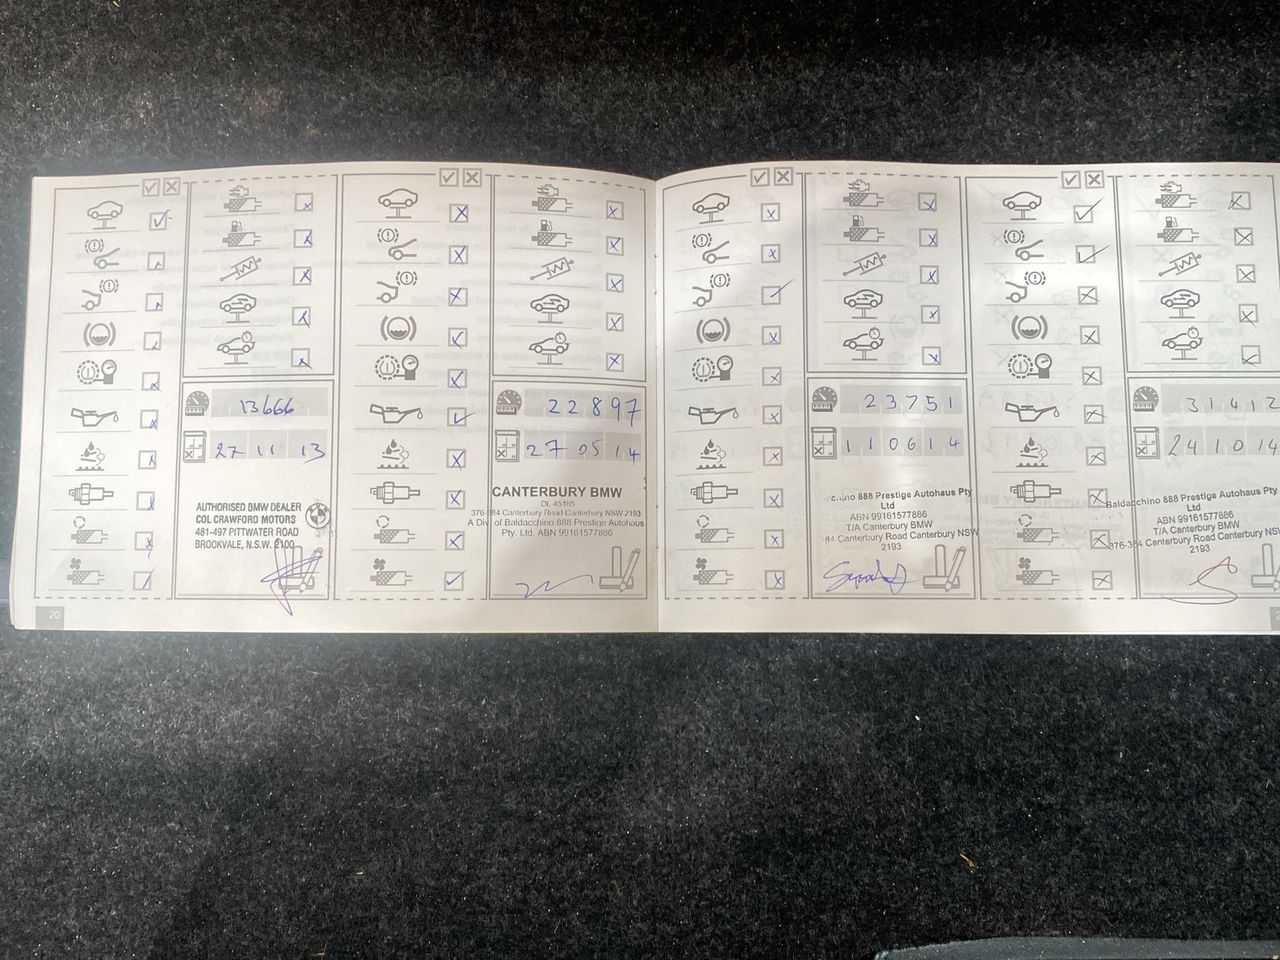 13666
27 11 13
AUTHORISED BMW DEALER
COL CRAWFORD MOTORS
481-497 PITTWATER ROAD
BROOKVALE, N.S.W. 2100
20
22897
27 05 14
CANTERBURY BMW
376-384 Canterbury Road Canterbury NSW 2193
A Div of Baldacchino 888 Prestige Autohaus
Pty. Ltd. ABN 99161577886
23751
110614
cchino 888 Prestige Autohaus Pty
Ltd
ABN 99161577886
T/A Canterbury BMW
84 Canterbury Road Canterbury NSW
2193
31412
241014
Baldacchino 888 Prestige Autohaus Pty
Ltd
ABN 99161577886
T/A Canterbury BMW
376-384 Canterbury Road Canterbury NSW
2193